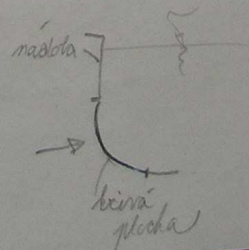 nádoba
křivá
plocha